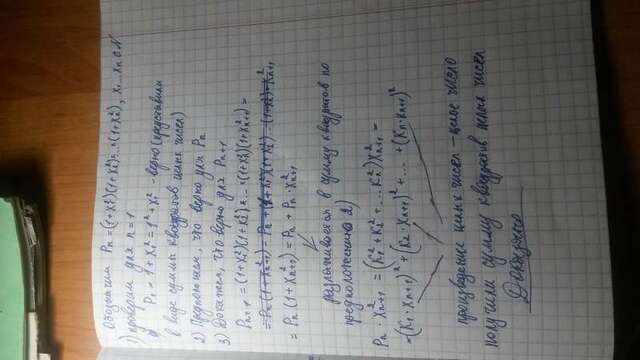 Обозначим Pn = (1+x₁²)(1+x₂²)·...·(1+xn²), x₁...xn ∈ N
1) проверим для n = 1
P₁ = 1+x₁² = 1²+x₁² - верно (представили
в виде суммы квадратов целых чисел)
2) Предположим, что верно для Pn
3) Докажем, что верно для Pn+1
Pn+1 = (1+x₁²)(1+x₂²)·...·(1+xn²)(1+x²n+1) =
= Pn(1+x²n+1) = Pn + Pn·x²n+1
раскладывается в сумму квадратов по
предположению 2)
Pn·x²n+1 = (K₁²+K₂²+...Kn²)x²n+1 =
= (K₁·xn+1)² + (K₂·xn+1)² + ... + (Kn·xn+1)²
произведение целых чисел - целое число
получили сумму квадратов целых чисел
Доказано